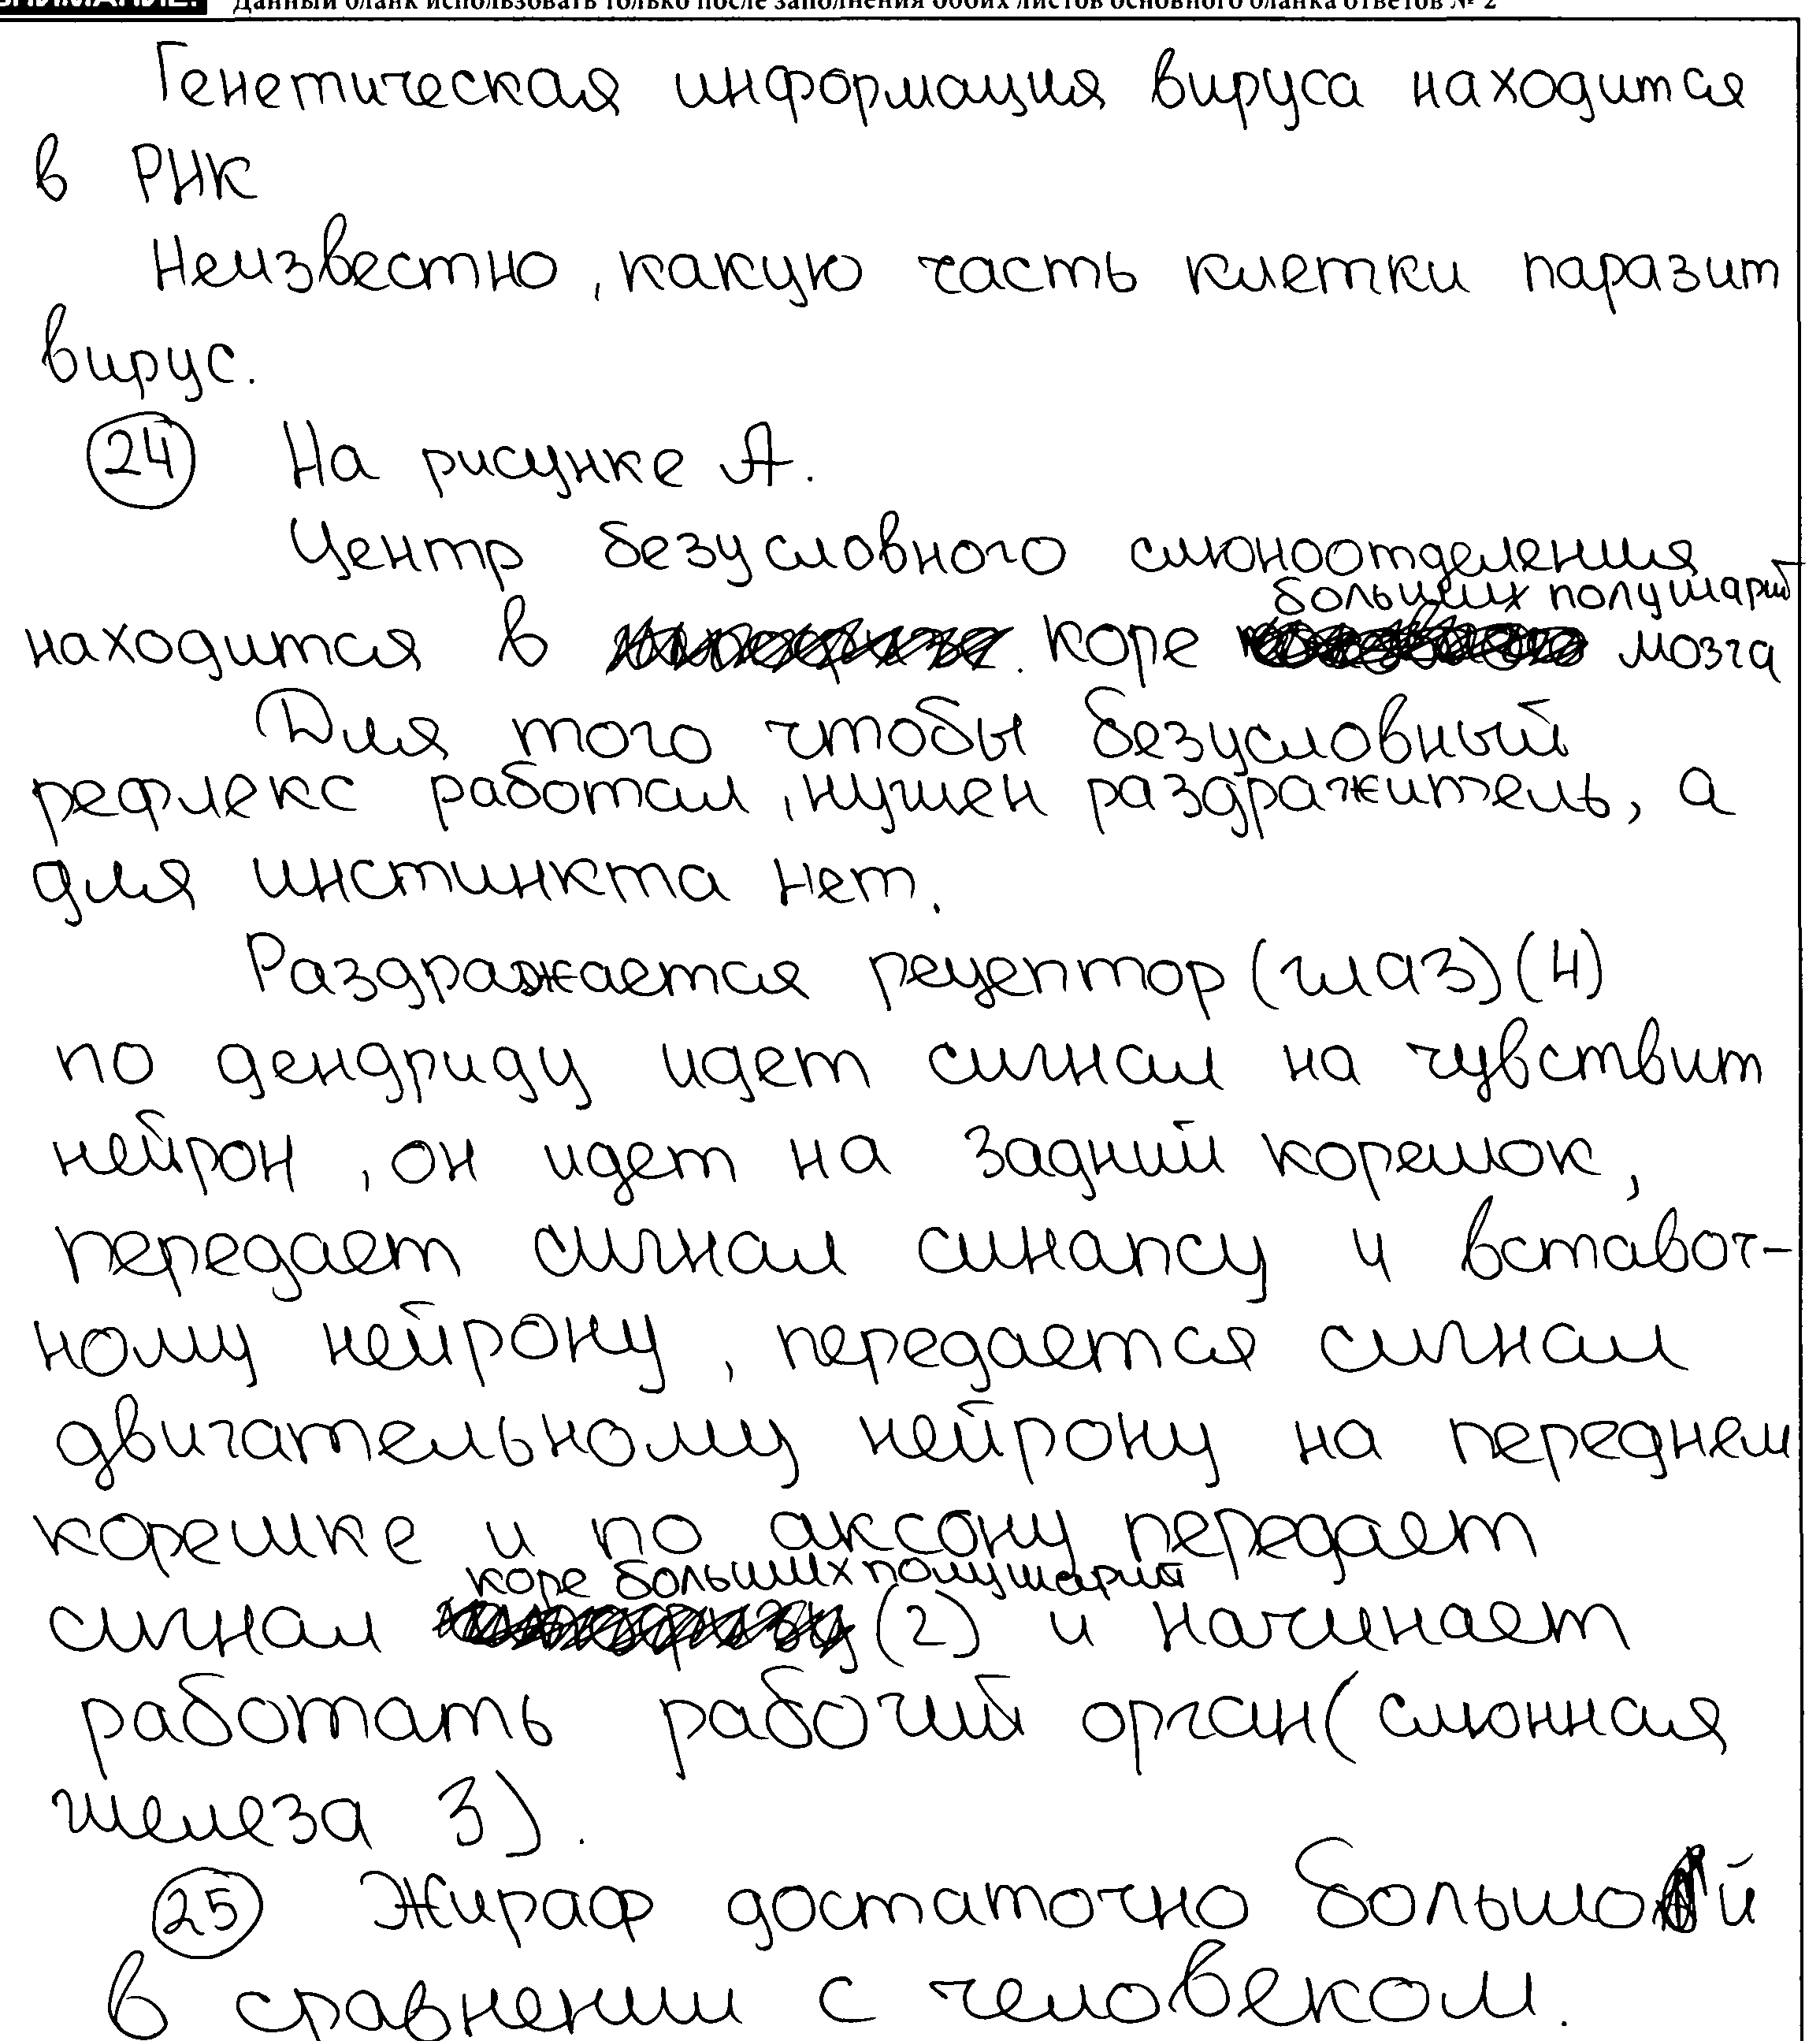 Данный бланк использовать только после заполнения обоих листов основного бланка ответов № 2
Генетическая информация вируса находится
в РНК
Неизвестно, какую часть клетки паразит
вирус.
24 На рисунке А.
Центр безусловного слюноотделения
находится в коре больших полушарий мозга
Для того чтобы безусловный
рефлекс работал, нужен раздражитель, а
для инстинкта нет.
Раздражается рецептор (глаз) (4)
по дендриду идет сигнал на чувствит
нейрон, он идет на задний корешок,
передает сигнал синапсу и вставоч-
ному нейрону, передается сигнал
двигательному нейрону на переднем
корешке и по аксону передает
сигнал коре больших полушарий (2) и начинает
работать рабочий орган (слюнная
железа 3).
25 Жираф достаточно большой
в сравнении с человеком.